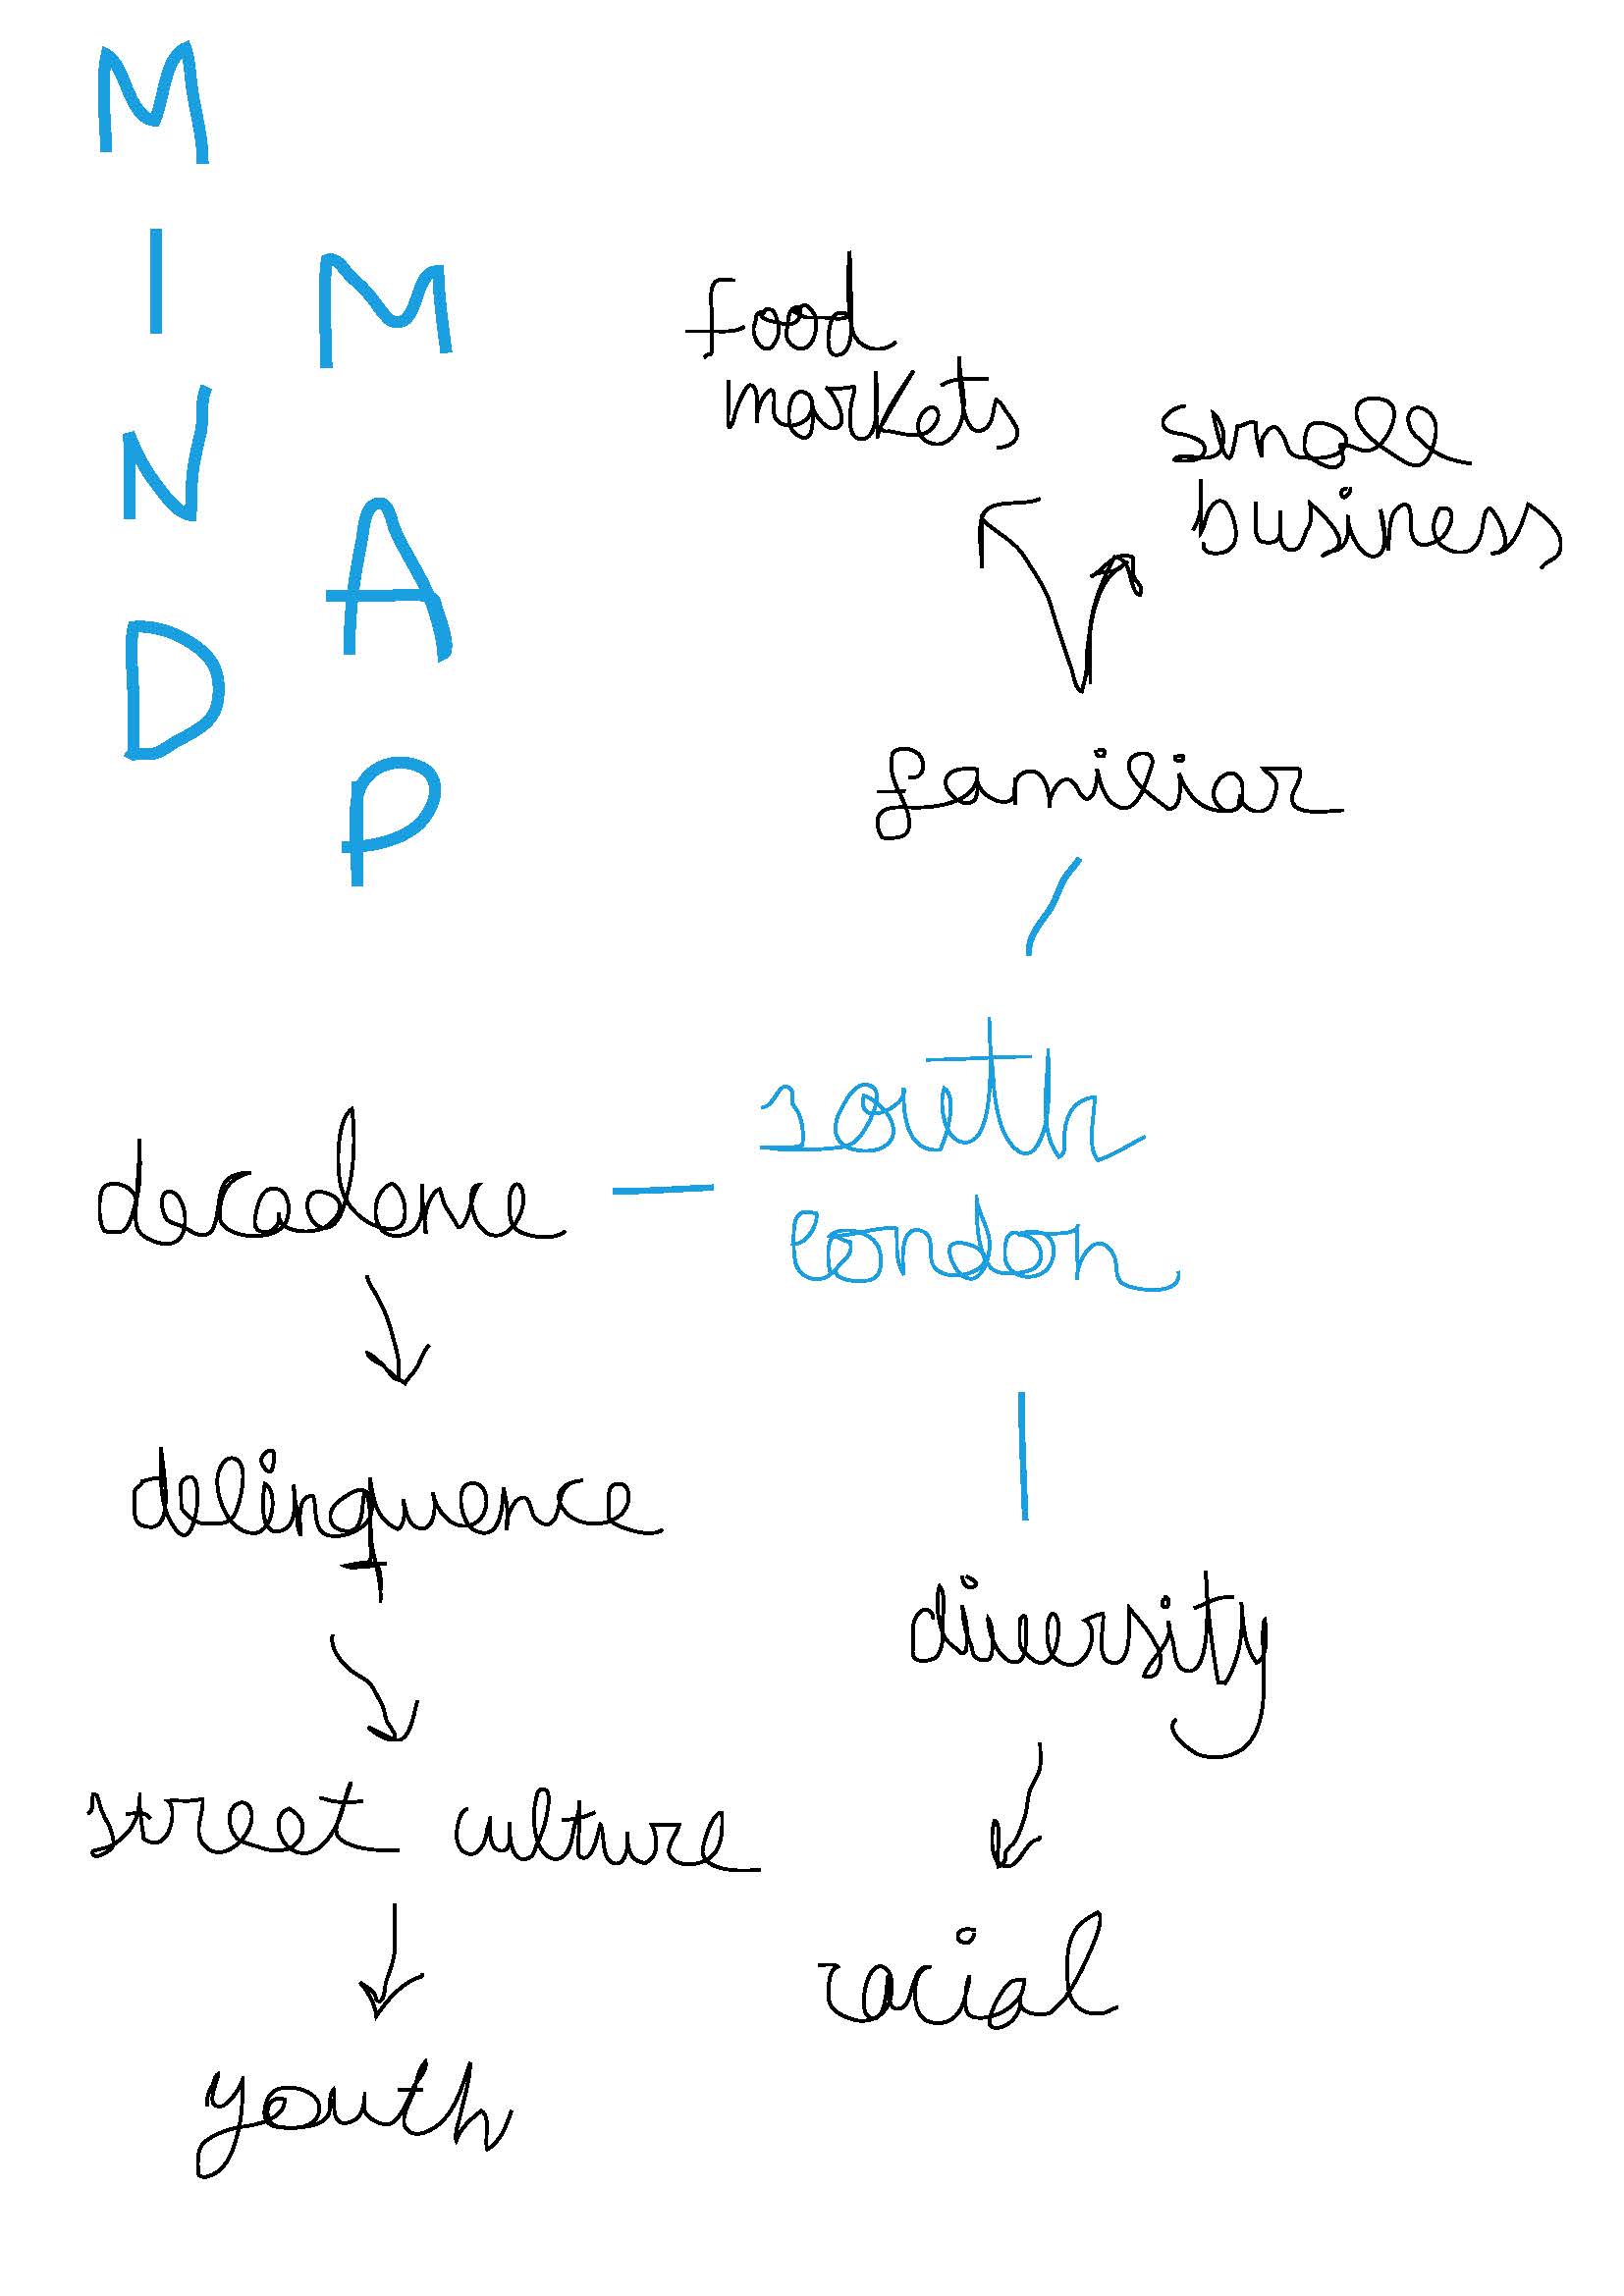 MIND
MAP
food
markets
small
business
familiar
south
london
decadence
delinquence
street culture
youth
diversity
racial